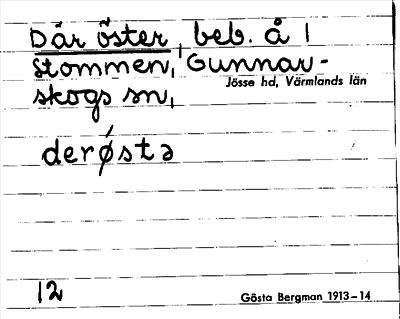 Där öster, beb. å 1
Stommen, Gunnar-
Jösse hd, Värmlands län
skogs sn,
derøstə
12
Gösta Bergman 1913-14